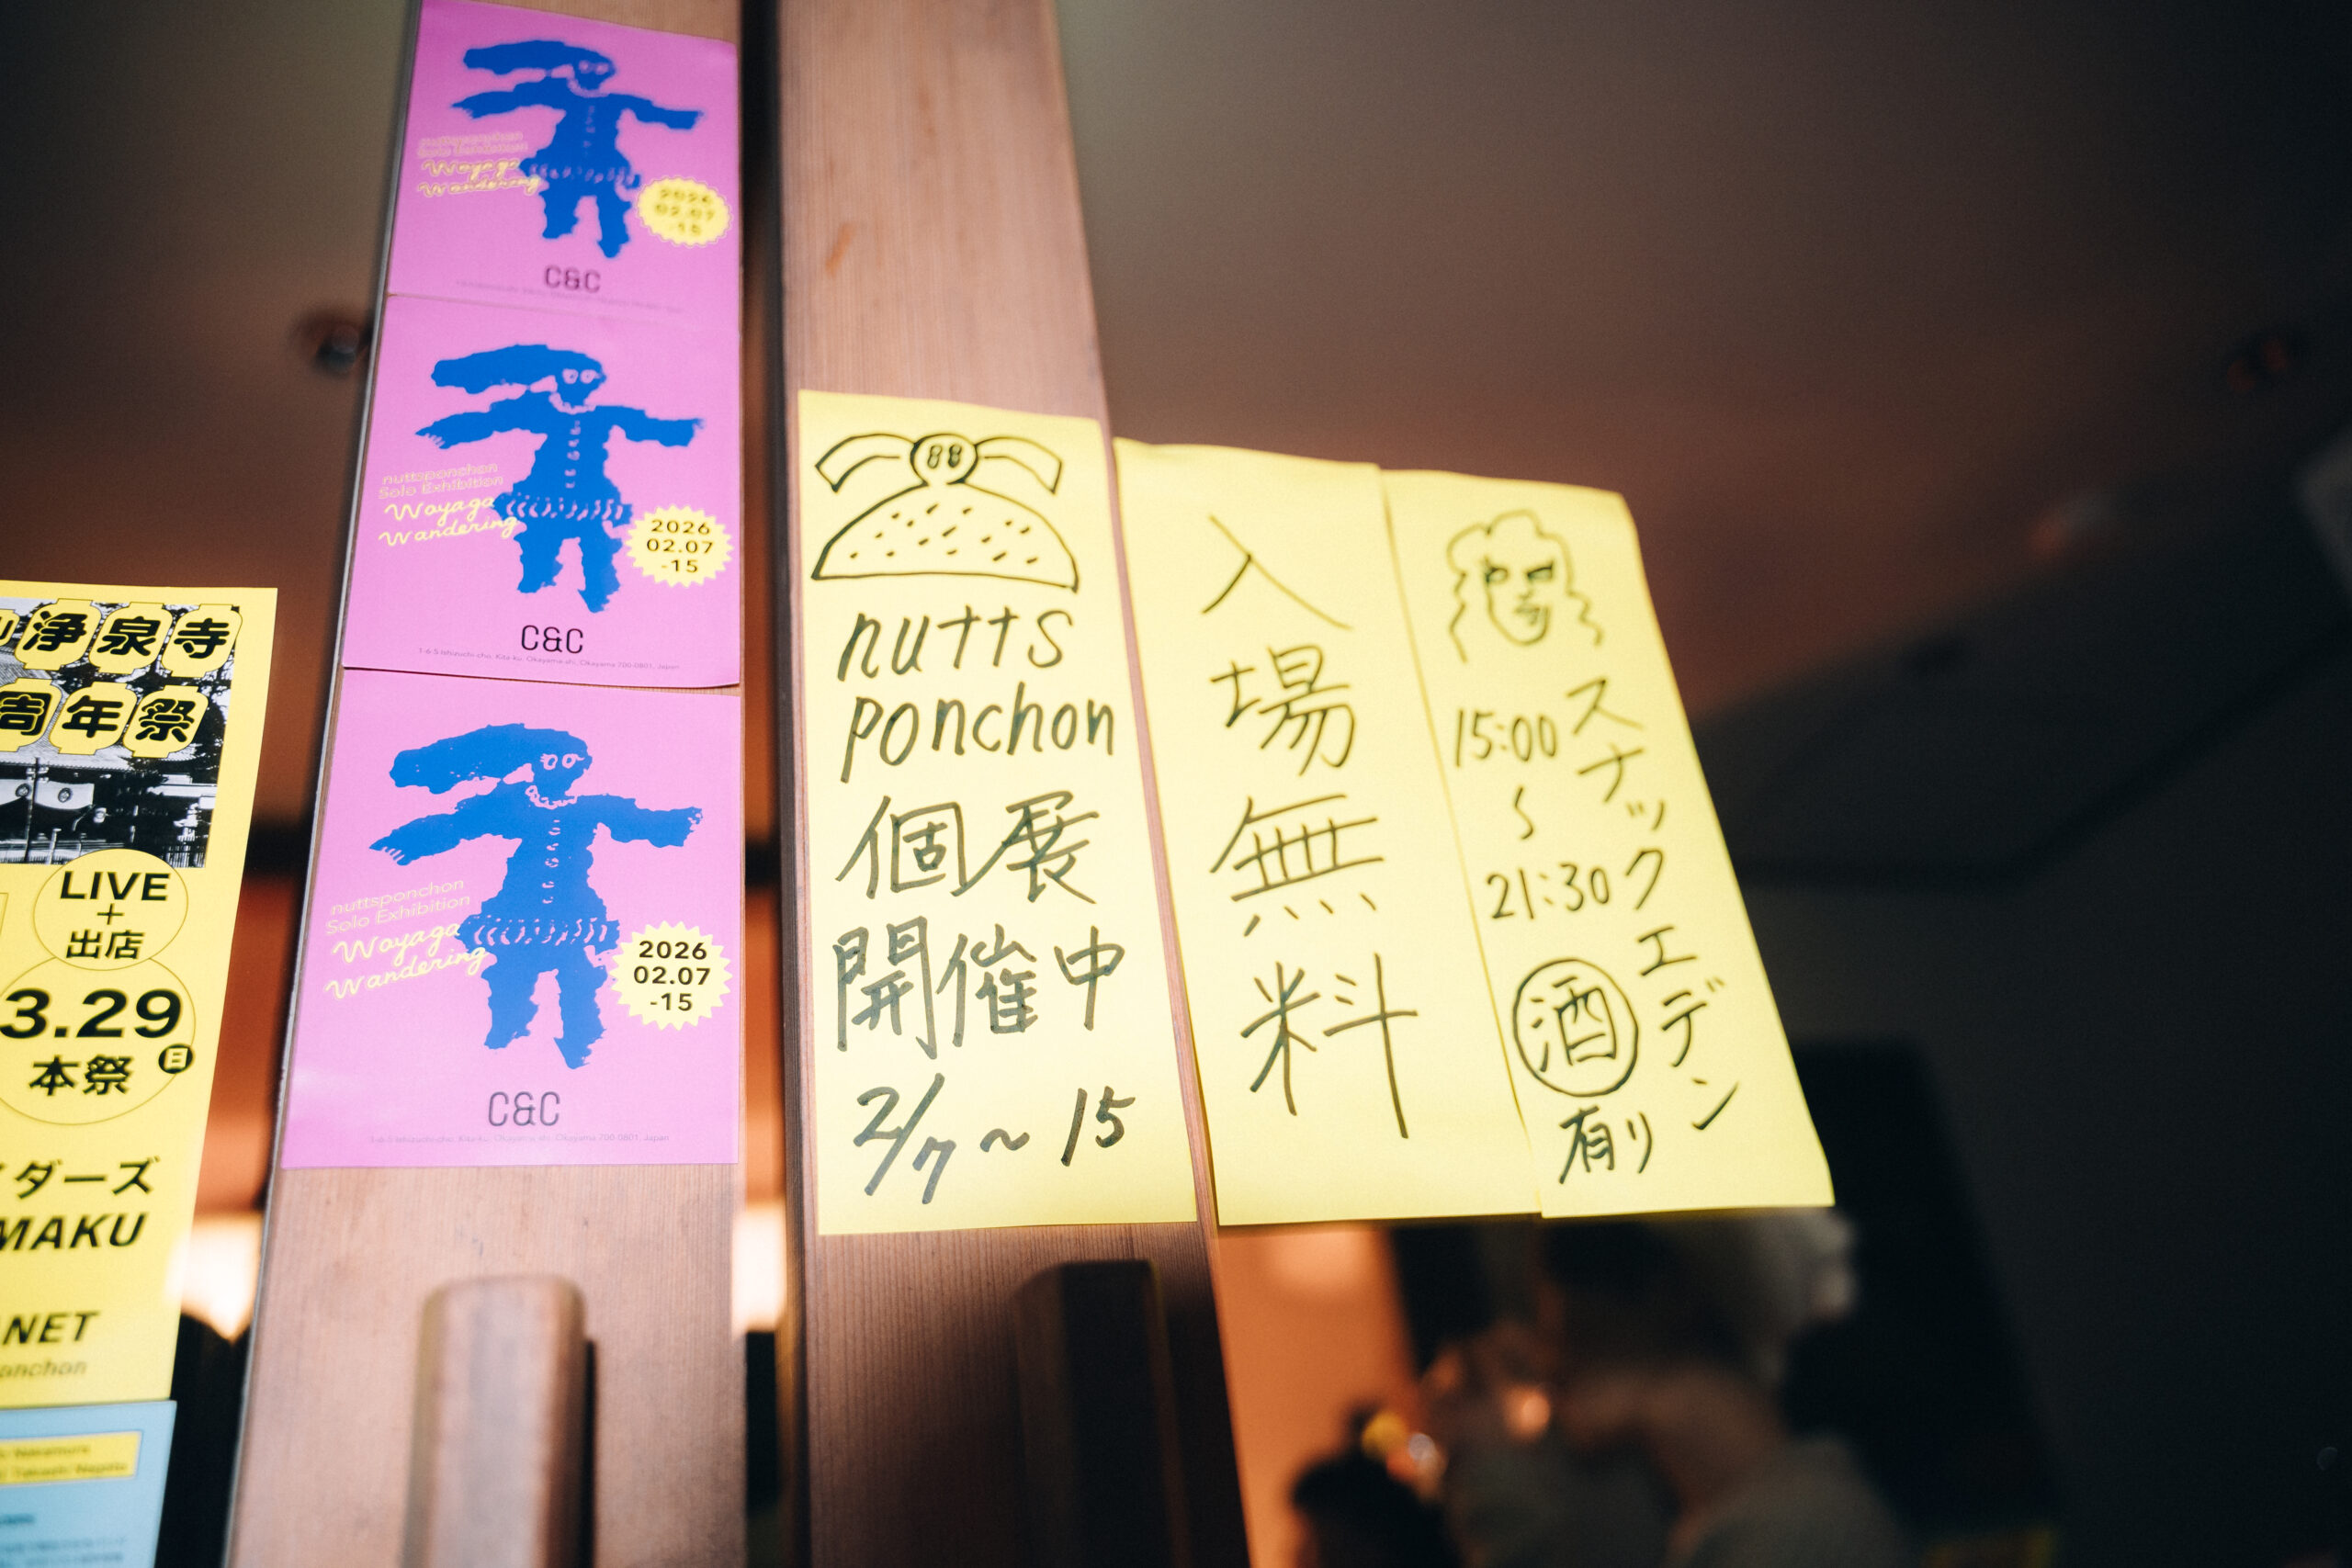 浄泉寺
周年祭
LIVE
+
出店
3.29
日
本祭
ダーズ
MAKU
NET
onchon
nuttsponchon
Solo Exhibition
Woyaga
Wandering
2026
02.07
-15
C&C
nuttsponchon
Solo Exhibition
Woyaga
Wandering
2026
02.07
-15
C&C
1-6-5 Ishizuchi-cho, Kita-ku, Okayama-shi, Okayama 700-0801, Japan
nuttsponchon
Solo Exhibition
Woyaga
Wandering
2026
02.07
-15
C&C
nutts
ponchon
個展
開催中
2/7〜15
入場無料
スナックエデン
15:00
〜
21:30
酒
有り